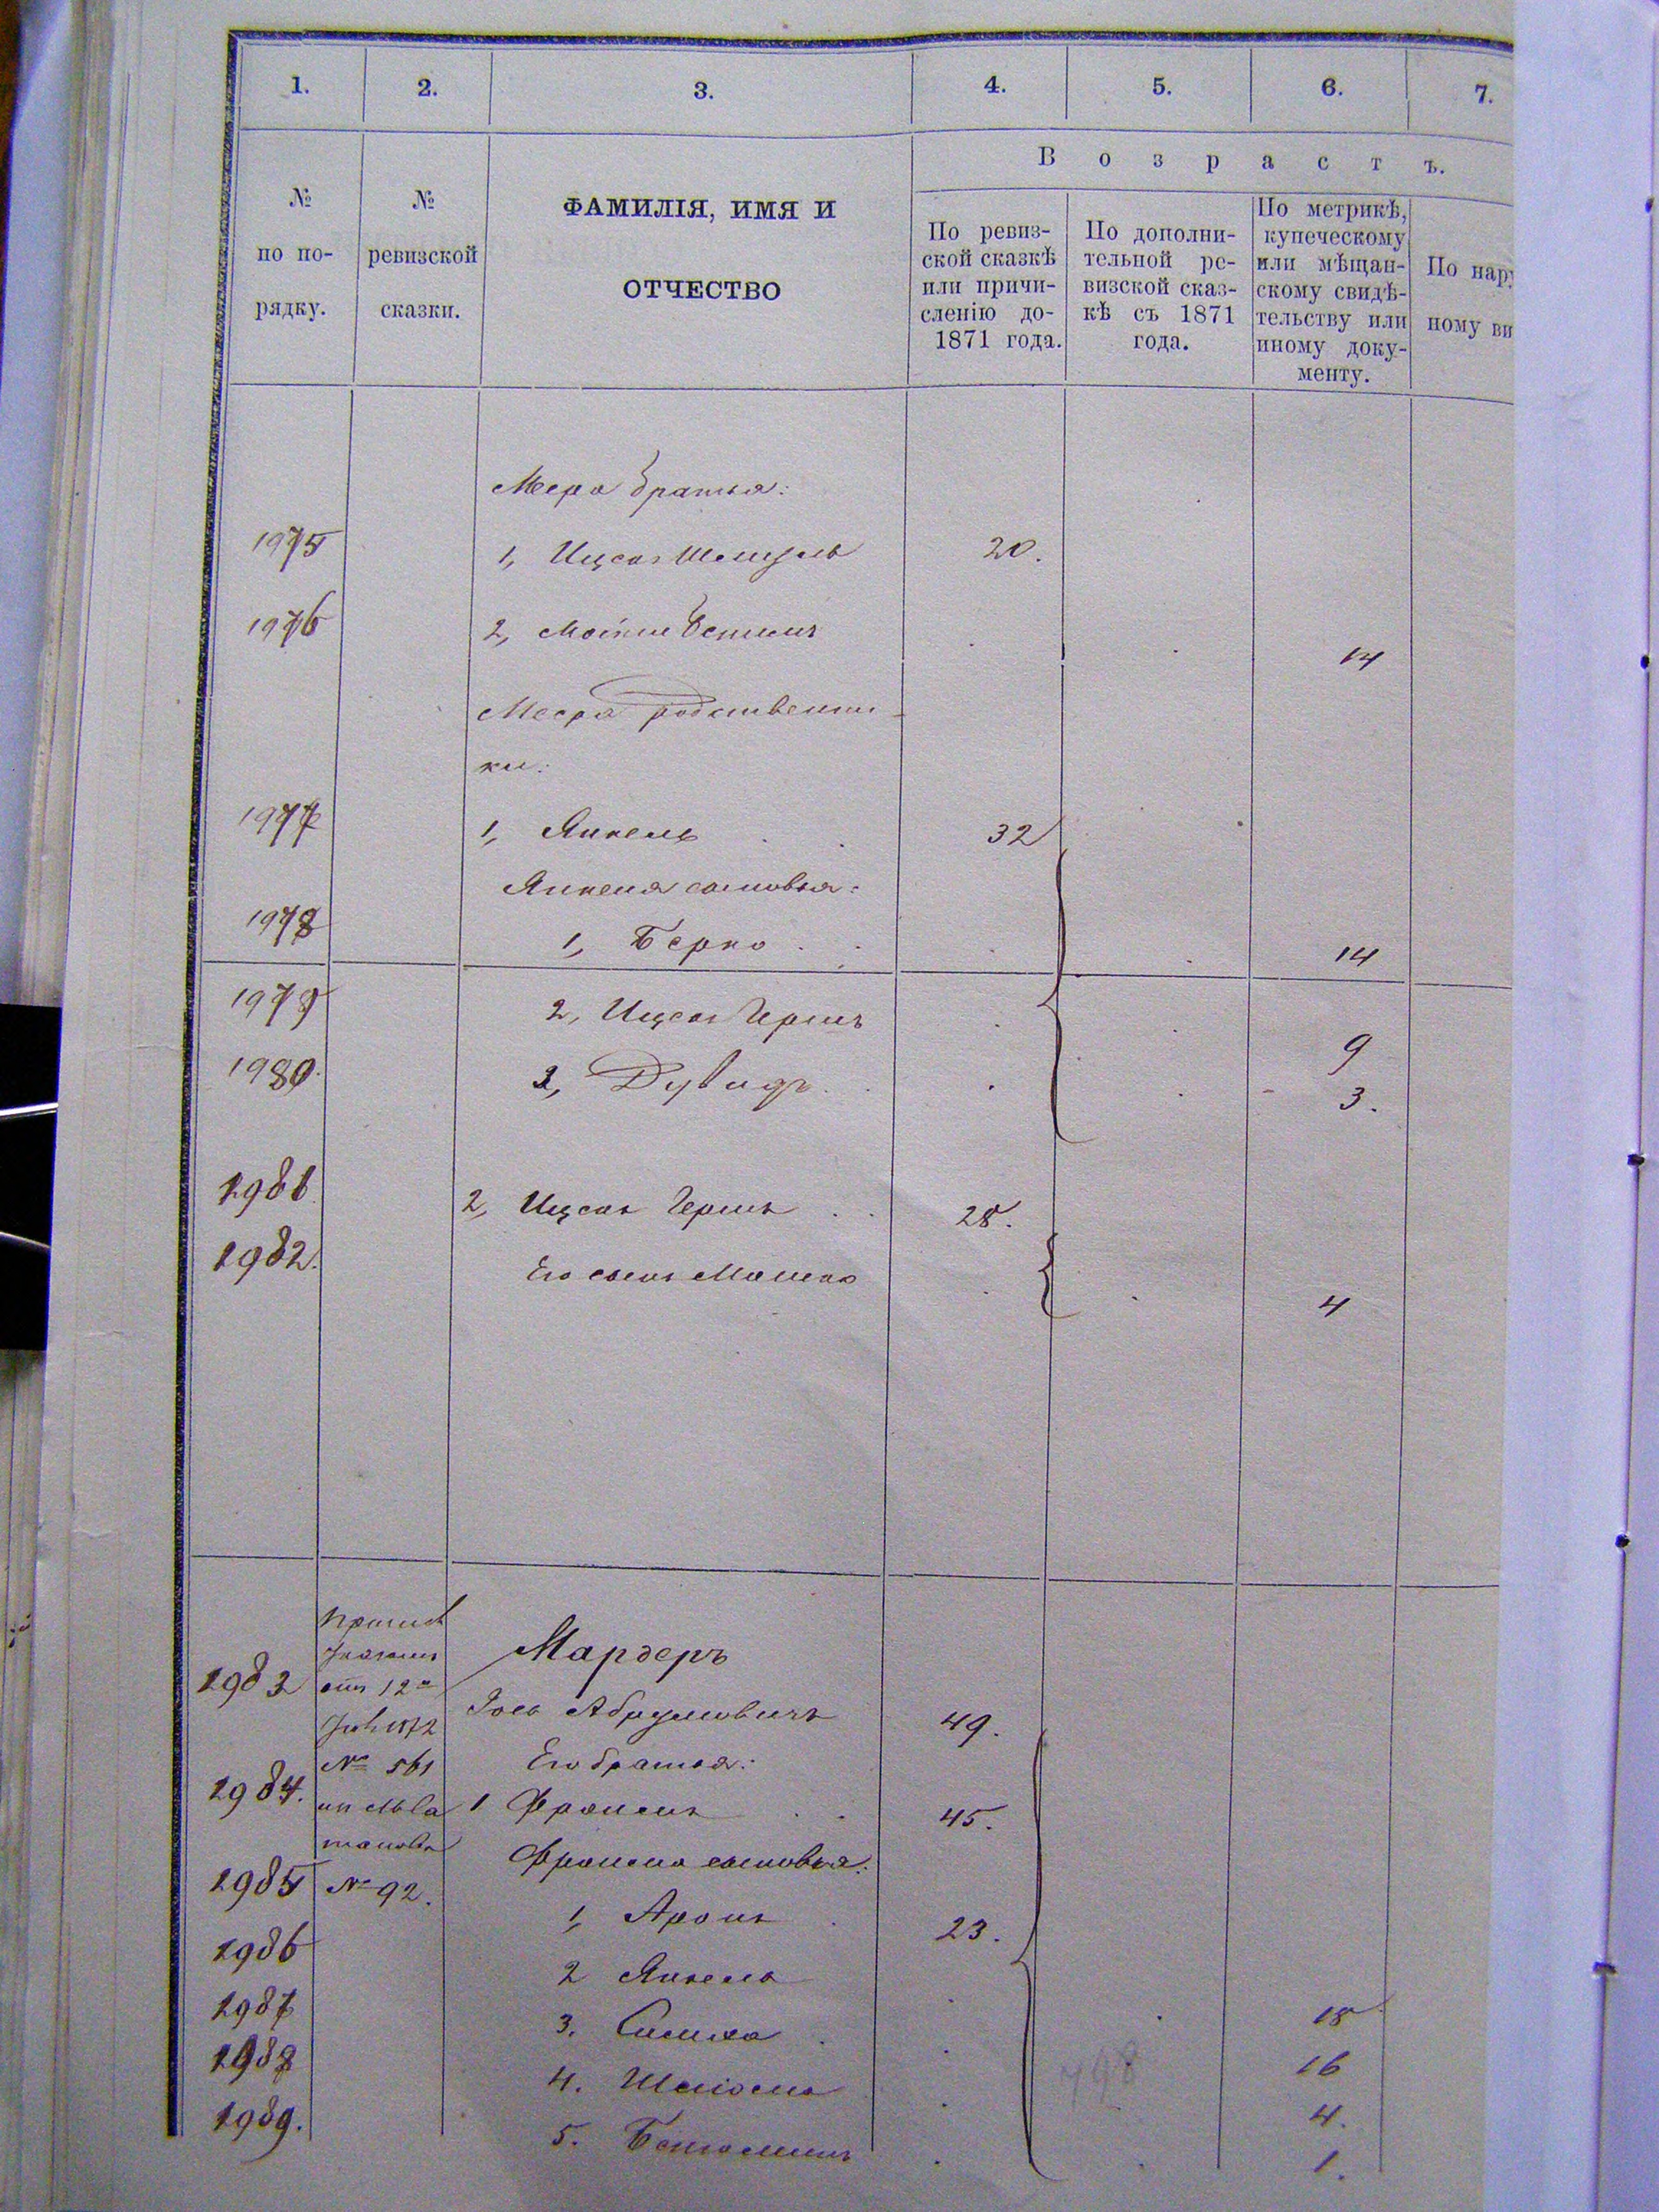 1. 2. 3. 4. 5. 6. 7.
В о з р а с т ъ.
№ по по- рядку.
№ ревизской сказки.
ФАМИЛІЯ, ИМЯ И
ОТЧЕСТВО
По ревиз-
ской сказкѣ
или причи-
сленію до-
1871 года.
По дополни-
тельной ре-
визской сказ-
кѣ съ 1871
года.
По метрикѣ,
купеческому
или мѣщан-
скому свидѣ-
тельству или
иному доку-
менту.
По нару
ному ви
Меера братья:
1975 1, Ицко 20.
1976 2, 14
Меера родственни-
ки:
1977 1, Янкель 32
Янкеля сыновья:
1978 1, Берко 14
1979 2, Ицко Гершъ 9
1980. 3, Дувидъ 3.
1981 2, Ицко Гершъ 28.
1982. Его сынъ Мошко 4
Мардеръ
1983 отъ 12го Іось Абрумовичъ 49.
1872
№ 561 Его братья:
1984. 1 Фроимъ 45.
Фроима сыновья:
1985 № 92. 1, Аронъ 23.
1986 2 Янкель 18
1987 3. Симха 16
1988 4. Шліома 4.
1989. 5. Беньюминъ 1.
798